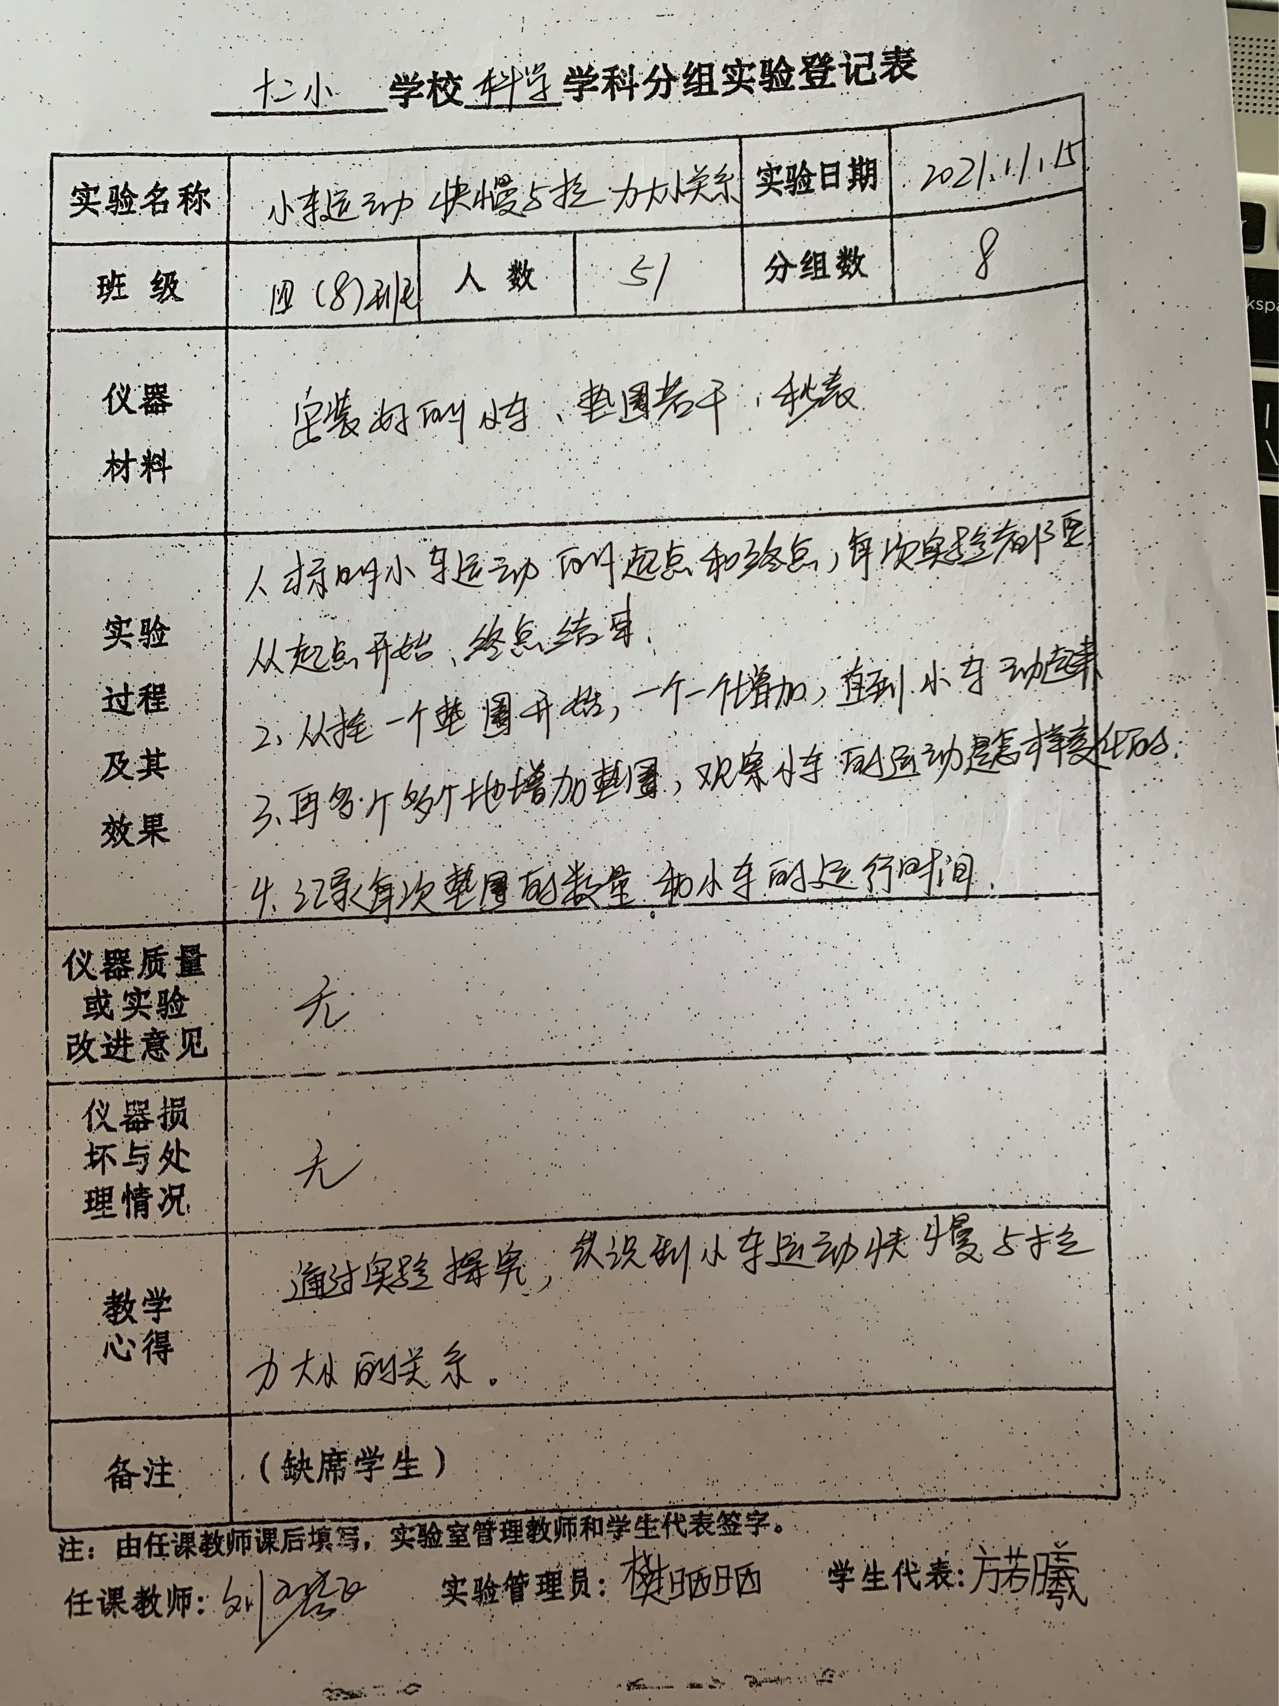 十二小学校科学学科分组实验登记表
实验名称 小车运动快慢与拉力大小关系 实验日期 2021.11.15
班级 四(8)班 人数 51 分组数 8
仪器
材料
安装好的小车、垫圈若干、秒表
实验
过程
及其
效果
1、标明小车运动的起点和终点,每次实验都
从起点开始、终点结束.
2、从挂一个垫圈开始,一个一个增加,直到小车动起来
3、再多个多个地增加垫圈,观察小车的运动是怎样变化的.
4、记录每次垫圈的数量和小车的运行时间.
仪器质量
或实验
改进意见
无
仪器损
坏与处
理情况
无
教学
心得
通过实验探究,认识到小车运动快慢与拉
力大小的关系。
备注 (缺席学生)
注:由任课教师课后填写,实验室管理教师和学生代表签字。
任课教师:刘 实验管理员:樊晒晒 学生代表:方若曦